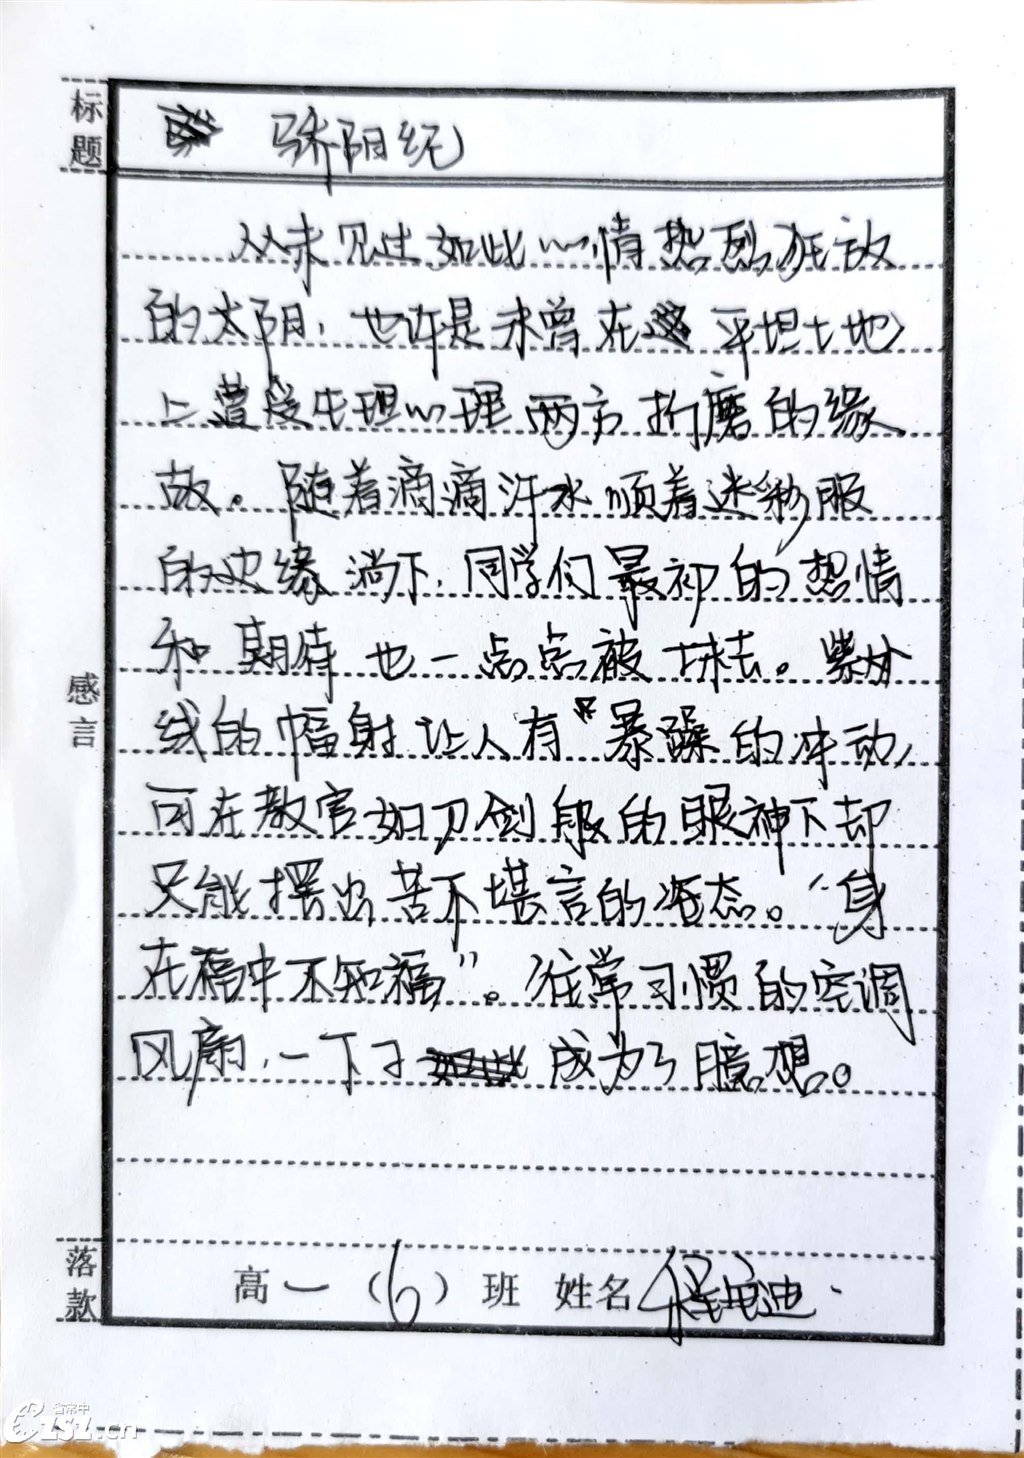 标题
骄阳纪
从未见过如此心情热烈狂放
的太阳，也许是未曾在平坦土地
上遭受生理心理两方折磨的缘
故。随着滴滴汗水顺着迷彩服
的边缘淌下，同学们最初的热情
和期待也一点点被抹去。紫外
线的幅射让人有暴躁的冲动，
可在教官如刀剑般的眼神下却
只能摆出苦不堪言的姿态。“身
在福中不知福”。往常习惯的空调
风扇，一下子成为了臆想。
感言
落款
高一（6）班 姓名
省常中